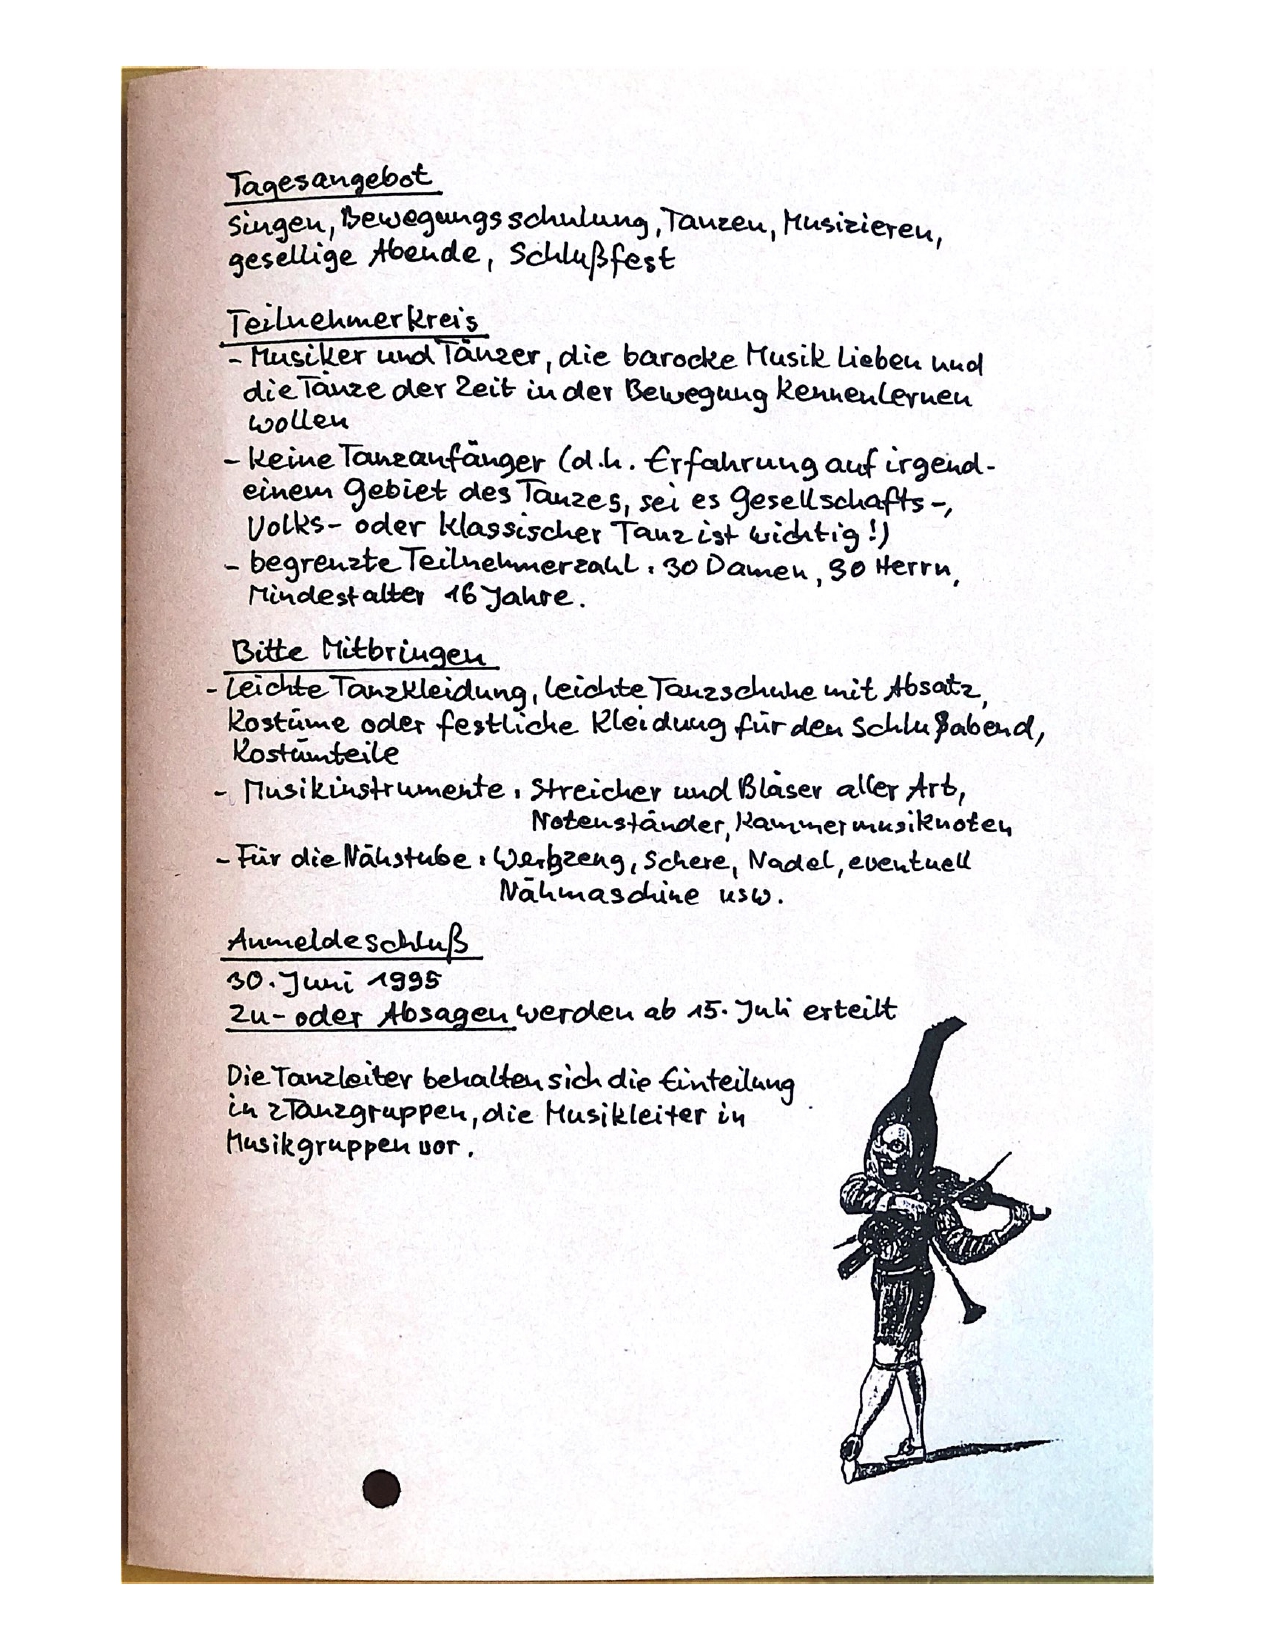 Tagesangebot
Singen, Bewegungsschulung, Tanzen, Musizieren,
gesellige Abende, Schlußfest
Teilnehmerkreis
- Musiker und Tänzer, die barocke Musik lieben und
die Tänze der Zeit in der Bewegung kennenlernen
wollen
- keine Tanzanfänger (d.h. Erfahrung auf irgend-
einem Gebiet des Tanzes, sei es Gesellschafts-,
Volks- oder klassischer Tanz ist wichtig!)
- begrenzte Teilnehmerzahl: 30 Damen, 30 Herrn,
Mindestalter 16 Jahre.
Bitte Mitbringen
- leichte Tanzkleidung, leichte Tanzschuhe mit Absatz,
Kostüme oder festliche Kleidung für den Schlußabend,
Kostümteile
- Musikinstrumente: Streicher und Bläser aller Art,
Notenständer, Kammermusiknoten
- Für die Nähstube: Werkzeug, Schere, Nadel, eventuell
Nähmaschine usw.
Anmeldeschluß
30. Juni 1995
Zu- oder Absagen werden ab 15. Juli erteilt
Die Tanzleiter behalten sich die Einteilung
in 2 Tanzgruppen, die Musikleiter in
Musikgruppen vor.